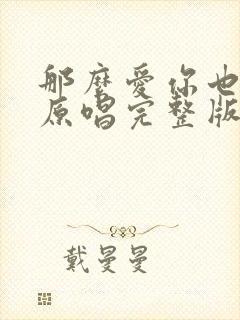 那麼愛你也
原唱完整版
戴曼曼